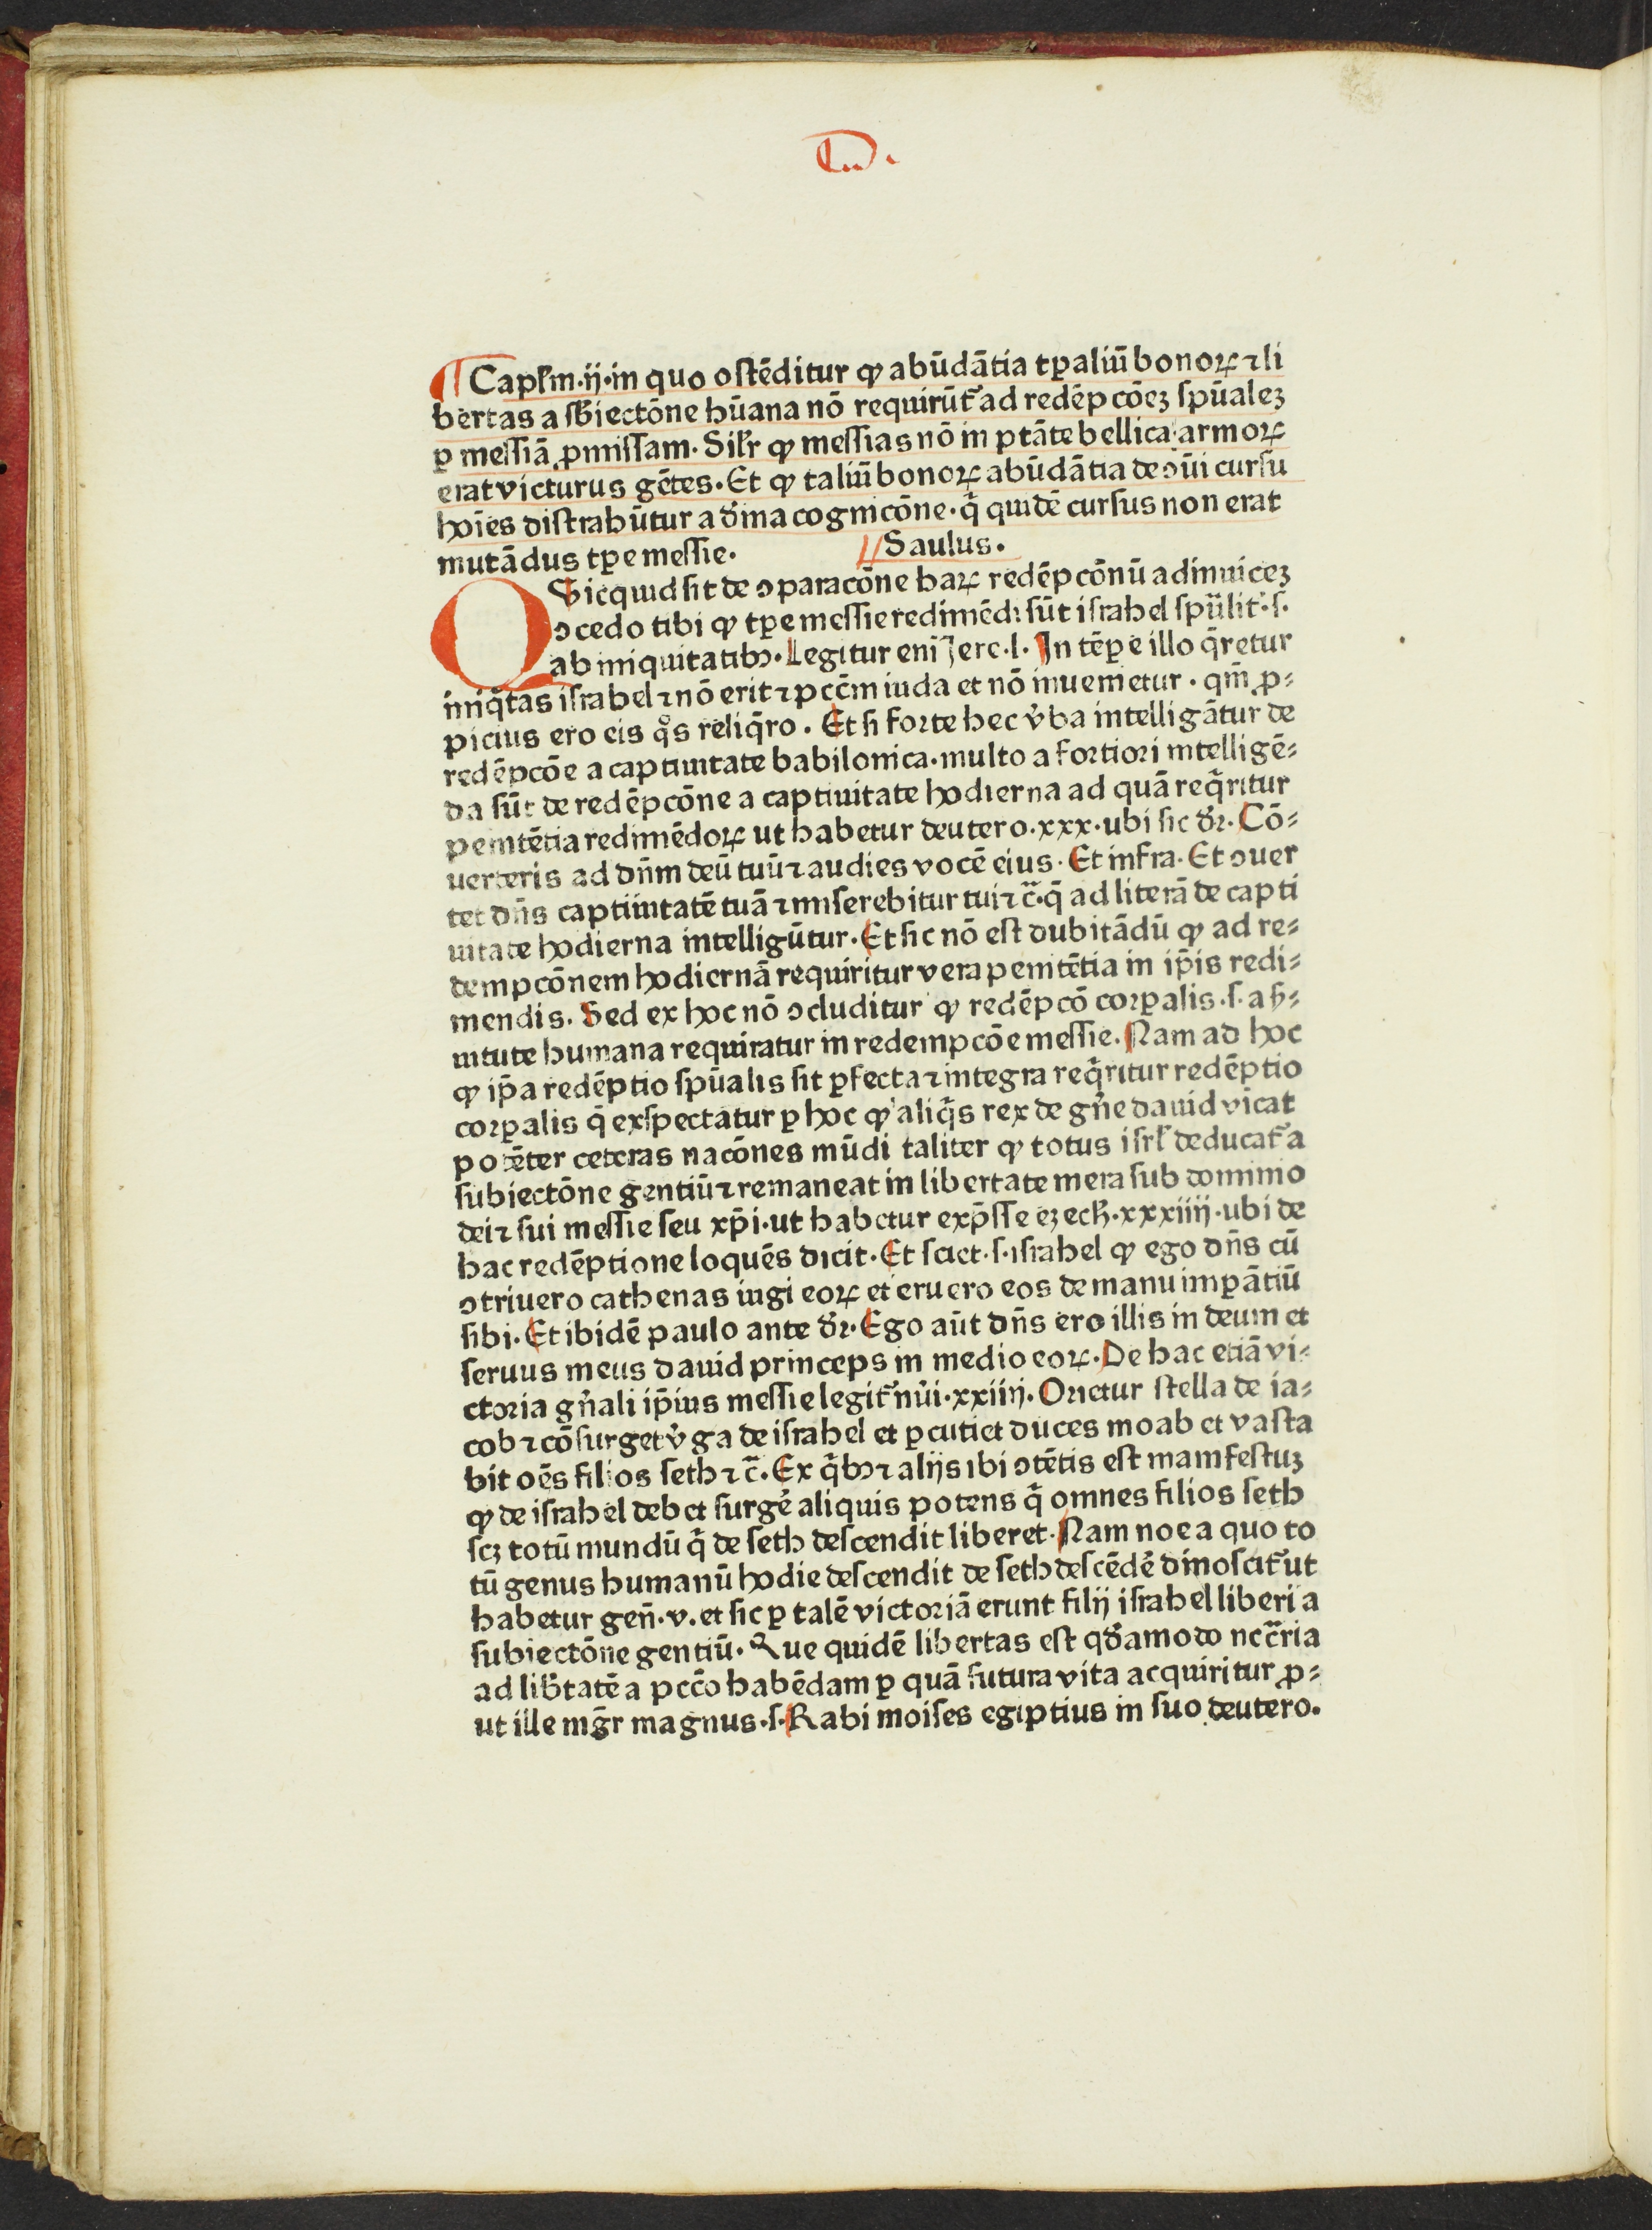 Capł’m·ij·in quo ostēditur ꝙ abūdātia tꝑaliū bonoꝝ ⁊ li
bertas a sb̄iectōne hūana nō requirūt᷑ ad redēpcōeꝫ spūaleꝫ
ꝑ messiā ꝓmissam. Sil’r ꝙ messias nō in ptāte bellica armoꝝ
erat victurus gētes. Et ꝙ taliū bonoꝝ abūdātia de ↄūi cursu
hoīes distrahūtur a dīna cognicōne· q̄ quidē cursus non erat
mutādus tꝑe messie. Saulus.
Quicquid sit de ↄparacōne haꝝ redēpcōnū adinuiceꝫ
ↄcedo tibi ꝙ tꝑe messie redimēdi sūt israhel spūlit᷑·s·
ab iniquitatibꝯ. Legitur eni Jere.l. In tēꝑe illo q̄retur
iniq̄tas israhel ⁊ nō erit ⁊ pccm̄ iuda et nō inuenietur · qm̄ ꝓ⸗
picius ero eis qͦs reliq̄ro. Et si forte hec v̓ba intelligātur de
redēpcōe a captiuitate babilonica· multo a fortiori intelligē⸗
da sūt de redēpcōne a captiuitate hodierna ad quā req̄ritur
penitētia redimēdoꝝ ut habetur deutero.xxx· ubi sic dr̄. Cō⸗
uerteris ad dn̄m deū tuū ⁊ audies vocē eius. Et infra. Et ↄuer
tet dn̄s captiuitatē tuā ⁊ miserebitur tui ⁊ c̄· q̄ ad literā de capti
uitate hodierna intelligūtur. Et sic nō est dubitādū ꝙ ad re⸗
dempcōnem hodiernā requiritur vera penitētia in ip̄is redi⸗
mendis. Sed ex hoc nō ↄcluditur ꝙ redēpcō corꝑalis ·s· a ẜ⸗
uitute humana requiratur in redempcōe messie. Nam ad hoc
ꝙ ip̄a redēptio spūalis sit ꝑfecta ⁊ integra req̄ritur redēptio
corꝑalis q̄ exspectatur ꝑ hoc ꝙ aliq̄s rex de gn̄e dauid vicat
potēter ceteras nacōnes mūdi taliter ꝙ totus isrl’ deducat᷑ a
subiectōne gentiū ⁊ remaneat in libertate mera sub dominio
dei ⁊ sui messie seu xp̄i· ut habetur exp̄sse ezech·xxxiiij· ubi de
hac redēptione loquēs dicit. Et sciet ·s· israhel ꝙ ego dn̄s cū
ↄtriuero cathenas iugi eoꝝ et eruero eos de manu imꝑātiū
sibi. Et ibidē paulo ante dr̄. Ego aūt dn̄s ero illis in deum et
seruus meus dauid princeps in medio eoꝝ. De hac etiā vi⸗
ctoria gn̄ali ip̄ius messie legit᷑ nūi·xxiiij. Orietur stella de ia⸗
cob ⁊ cōsurget v̓ga de israhel et ꝑcutiet duces moab et vasta
bit oēs filios seth ⁊ c̄. Ex q̄bꝯ ⁊ alijs ibi ↄtētis est manifestuꝫ
ꝙ de israhel debet surgē aliquis potens q̄ omnes filios seth
scꝫ totū mundū q̄ de seth descendit liberet. Nam noe a quo to
tū genus humanū hodie descendit de seth descēdē dinoscit᷑ ut
habetur gen̄·v. et sic ꝑ talē victoriā erunt filij israhel liberi a
subiectōne gentiū. Que quidē libertas est qd̄amodo ncc̄ria
ad lib̄tatē a pccō habēdam ꝑ quā futura vita acquiritur ꝓ⸗
ut ille mḡr magnus ·s· Rabi moises egiptius in suo deutero.